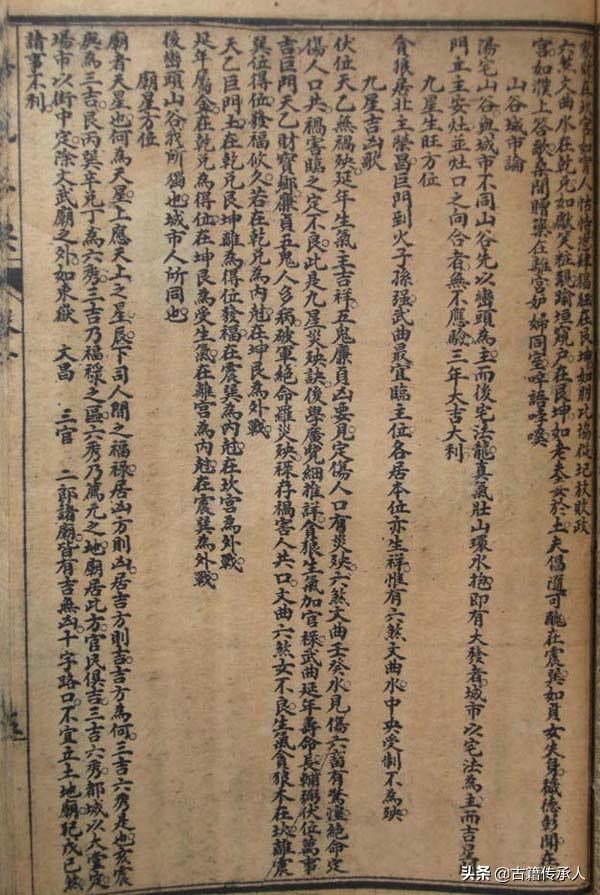 六煞文曲水在乾兑如獻笑粧親踰垣窺户在艮坤如老夫女於土夫倡道可醜在震巽如貞女失身穢德彰聞在
宮如濮上谷歌桑間贈藥在離宮妒婦同室啐語呼喚
山谷城市論
湯宅山谷與城市不同山谷先以巒頭為主而後宅法龍真氣壯山環水抱即有大發者城市以宅法為主而吉星
門主主安灶並灶口之向合者無不應驗三年大吉大利
九星生旺方位
貪狼居北主榮昌巨門到火子孫强武曲最宜臨主位各居本位亦生祥惟有六煞文曲水中央受制不為殃
九星吉凶歌
伏位天乙無禍殃延年生氣主吉祥五鬼廉貞凶要見定傷人口有災殃六煞文曲壬癸水見傷六畜有驚運絕命定
傷人口共禍害臨之定不良此是九星災殃訣後學廣覽細推詳貪狼生氣加官祿武曲延年壽命長輔弼伏位萬事
吉巨門天乙財寶鄉廉貞五鬼人多病破軍絕命罹災殃祿存禍害人共口文曲六煞女不良生氣貪狼木在坎離震
巽位得位發福攸久若在乾兑為內尅在坤艮為外戰
天乙巨門土在乾兑艮坤離為得位發福在震巽為內尅在坎宮為外戰
延年屬金在乾兑為得位在坤艮為受生氣在離宮為內尅在震巽為外戰
後巒頭山谷我所獨也城市人所同也
廟星方位
廟者天星也何為天星上應天上之星辰下司人間之福祿居凶方則凶居吉方則吉吉方為何三吉六秀是也亥震
與為三吉艮丙巽辛兑丁為六秀三吉乃福祿之區六秀乃薦元之地廟居此方官民俱吉三吉六秀都城以大堂定
場市以街中定除文武廟之外如東嶽　文昌　三官　二郎諸廟皆有吉無凶十字路口不宜立土地廟犯戊己煞
諸事不利
头条 @古籍传承人